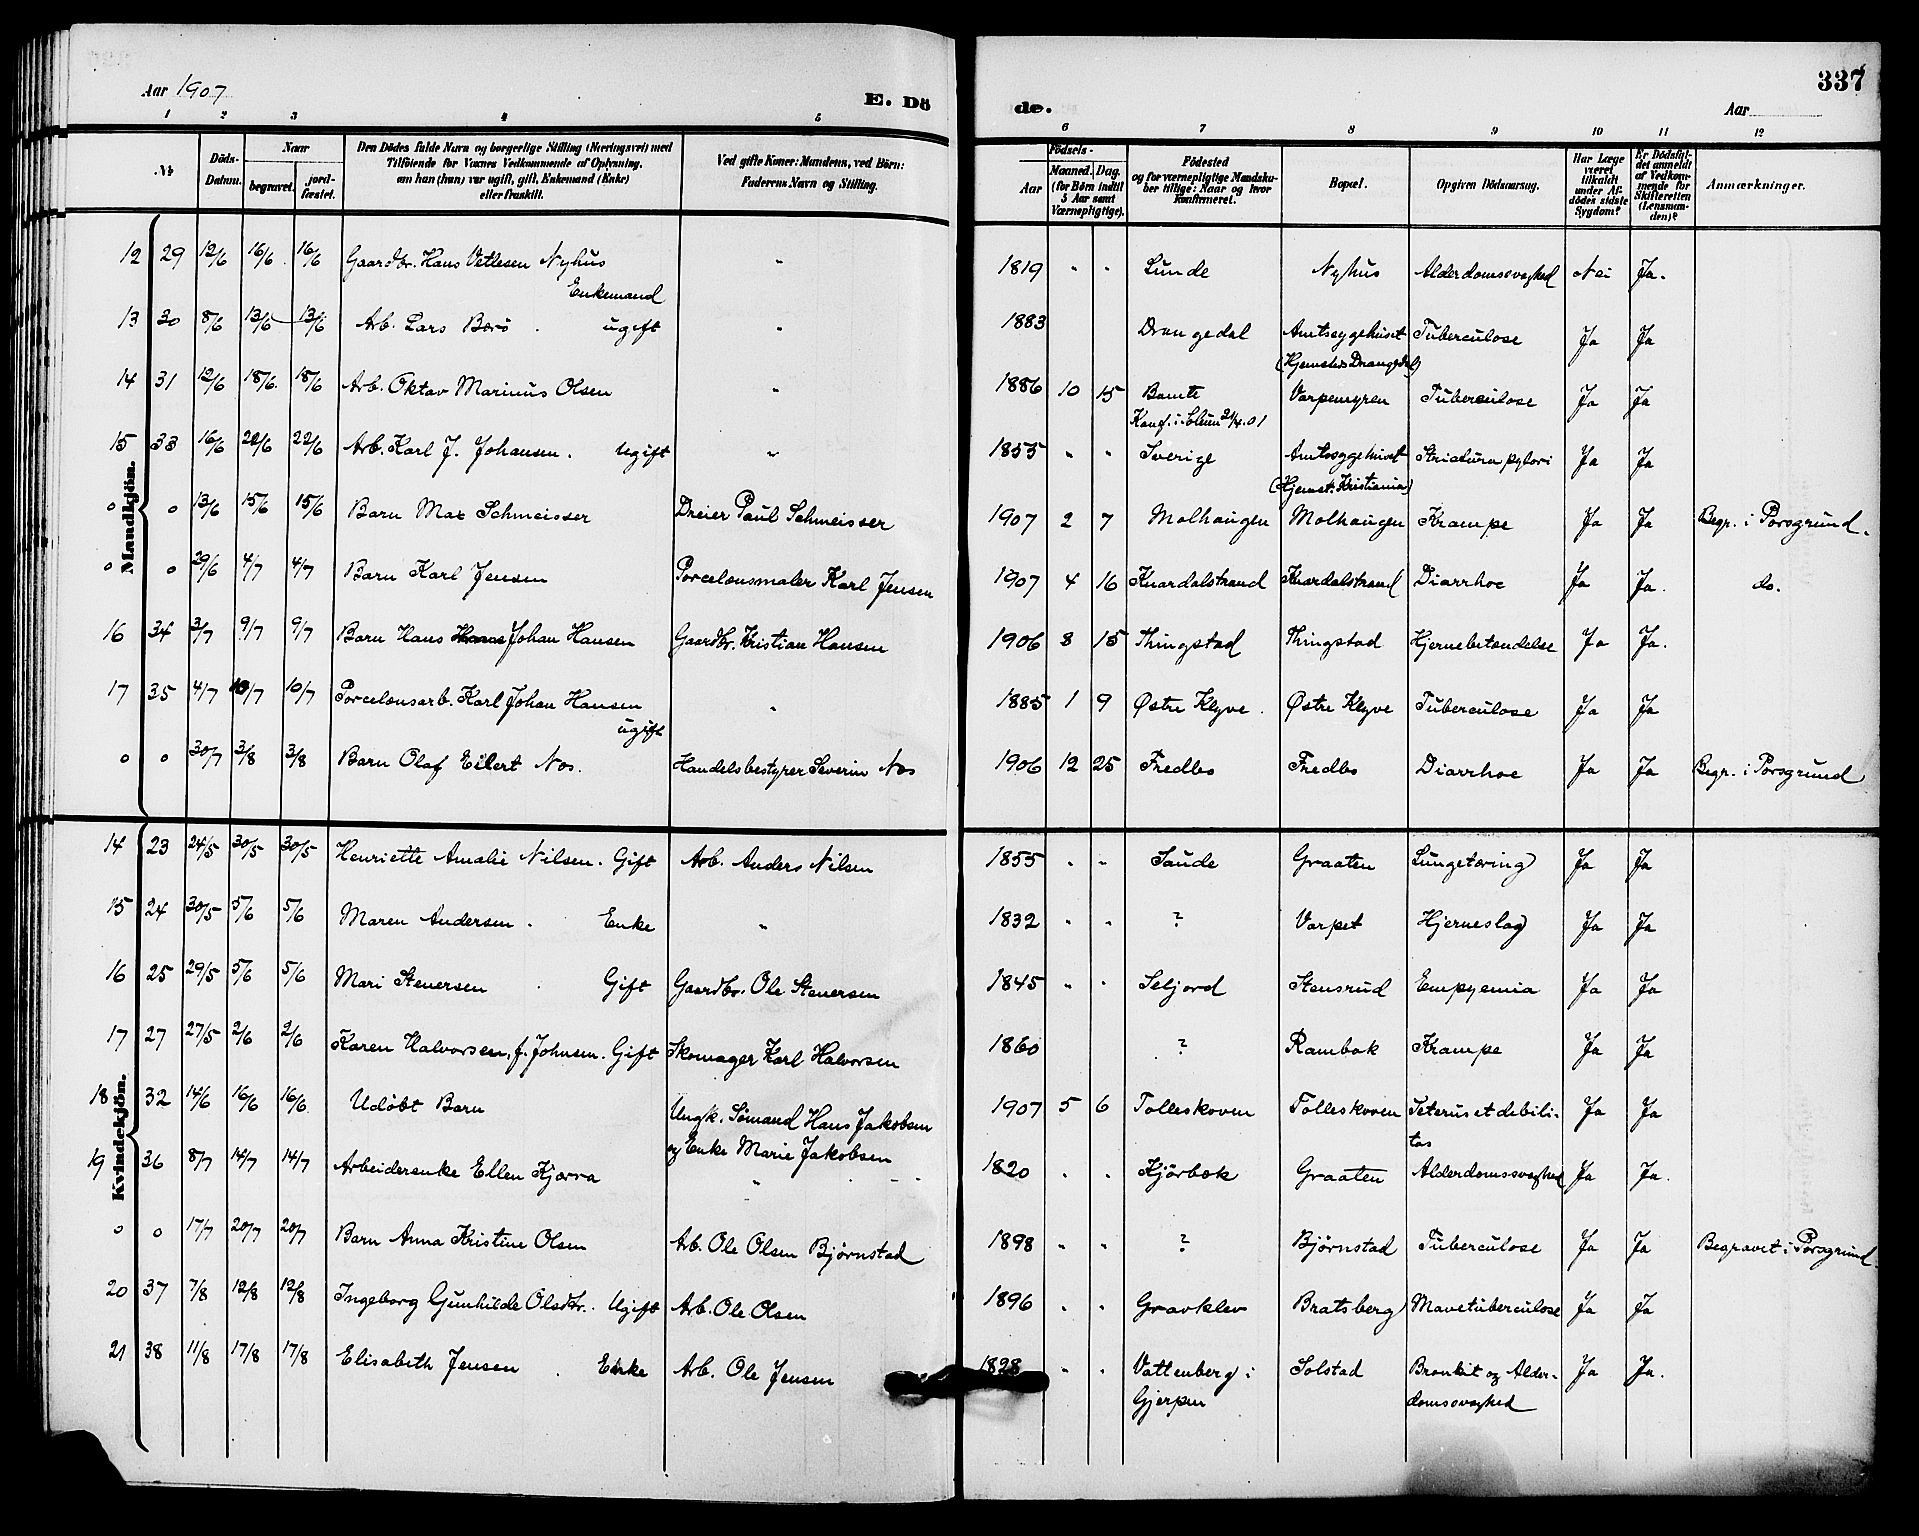 Aar 1907 E. Dö
de. Aar 337
1 2 3 4 5 6 7 8 9 10 11 12
No
Döds-Datum.
Naar
begravet.
jord-fæstet.
Den Dödes fulde Navn og borgerlige Stilling (Næringsvei) med
Tilföiende for Voxnes Vedkommende af Oplysning,
om han (hun) var ugift, gift, Enkemand (Enke)
eller fraskilt.
Ved gifte Koner: Mandens, ved Börn:
Faderens Navn og Stilling.
Födsels-
Aar
Maaned. Dag.
(for Börn indtil
5 Aar samt
Værnepligtige).
Födested
og for værnepligtige Mandska-
ber tillige: Naar og hvor
konfirmeret.
Bopæl.
Opgiven Dödsaarsag.
Har Læge
været
tilkaldt
under Af-
dödes sidste
Sygdom?
Er Dödsfal-
det anmeldt
af Vedkom-
mende for
Skifteretten
(Lensman-
den)?
Anmærkninger.
Mandkjön.
12 29 12/6 16/6 16/6 Gaardbr. Hans Vetlesen Nyhus " 1819 " " Lunde Nyhus Alderdomssvaghed Nei Ja.
Enkemand
13 30 8/6 13/6 13/6 Arb. Lars Berö . ugift " 1883 Drangedal Amtssygehuset Tuberculose Ja Ja
(Hjemsted Drangedal)
14 31 12/6 18/6 18/6 Arb. Oktav Marinus Olsen " 1886 10 15 Bamle Varpemyren Tuberculose Ja Ja
Konf. i Solum 21/4.01
15 33 16/6 22/6 22/6 Arb. Karl J. Johansen. Ugift " 1855 " " Sverige Amtssygehuset Strictura pylori Ja Ja
(Hjemst. Kristiania)
o o 13/6 15/6 15/6 Barn Max Schmeisser Dreier Paul Schmeisser 1907 2 7 Molhaugen Molhaugen Krampe Ja Ja Begr. i Porsgrund.
o o 29/6 4/7 4/7 Barn Karl Jensen Porcelensmaler Karl Jensen 1907 4 16 Knardalstrand Knardalstrand Diarrhoe Ja Ja. do.
16 34 3/7 9/7 9/7 Barn Hans Hans Johan Hansen Gaardbr. Kristian Hansen 1906 8 15 Thingstad Thingstad Hjernebetændelse Ja Ja.
17 35 4/7 10/7 10/7 Porcelænsarb. Karl Johan Hansen " 1885 1 9 Østre Klyve. Østre Klyve Tuberculose Ja Ja
ugift
o o 30/7 3/8 3/8 Barn Olaf Eilert Nos. Handelsbestyrer Severin Nos 1906 12 25 Fredbo Fredbo Diarrhoe Ja Ja Begr. i Porsgrund
Kvindekjön.
14 23 24/5 30/5 30/5 Henriette Amalie Nilsen. Gift Arb. Anders Nilsen 1855 " " Saude Graaten Lungetæring Ja Ja
15 24 30/5 5/6 5/6 Maren Andersen . Enke " 1832 " " ? Varpet Hjerneslag Ja Ja
16 25 29/5 5/6 5/6 Mari Stenersen . Gift Gaardbr. Ole Stenersen 1845 " " Seljord Stensrud Empyemia Ja Ja
17 27 27/5 2/6 2/6 Karen Halvorsen, f. Johnsen. Gift Skomager Karl Halvorsen 1860 ? Rambæk Krampe Ja Ja
18 32 14/6 16/6 16/6 Udöbt Barn Ungk. Sömand Hans Jakobsen 1907 5 6 Tolleskoven Tolleskoven Icterus et debili- Ja Ja
og Enke Marie Jakobsen tas
19 36 8/7 14/7 14/7 Arbeiderenke Ellen Kjærra " 1820 " " Kjörbæk Graaten Alderdomssvaghed Ja Ja.
o o 17/7 20/7 20/7 Barn Anna Kristine Olsen Arb. Ole Olsen Björnstad 1898 " " ? Björnstad Tuberculose Ja Ja Begravet i Porsgrund.
20 37 7/8 12/8 12/8 Ingeborg Gunhilde Olsdtr. Ugift Arb. Ole Olsen 1896 " " Gravklev Bratsberg Mavetuberculose Ja Ja
21 38 11/8 17/8 17/8 Elisabeth Jensen . Enke Arb. Ole Jensen 1828 " " Vattenberg i Solstad Bronkit og Alder- Ja Ja.
Gjerpen domssvaghed